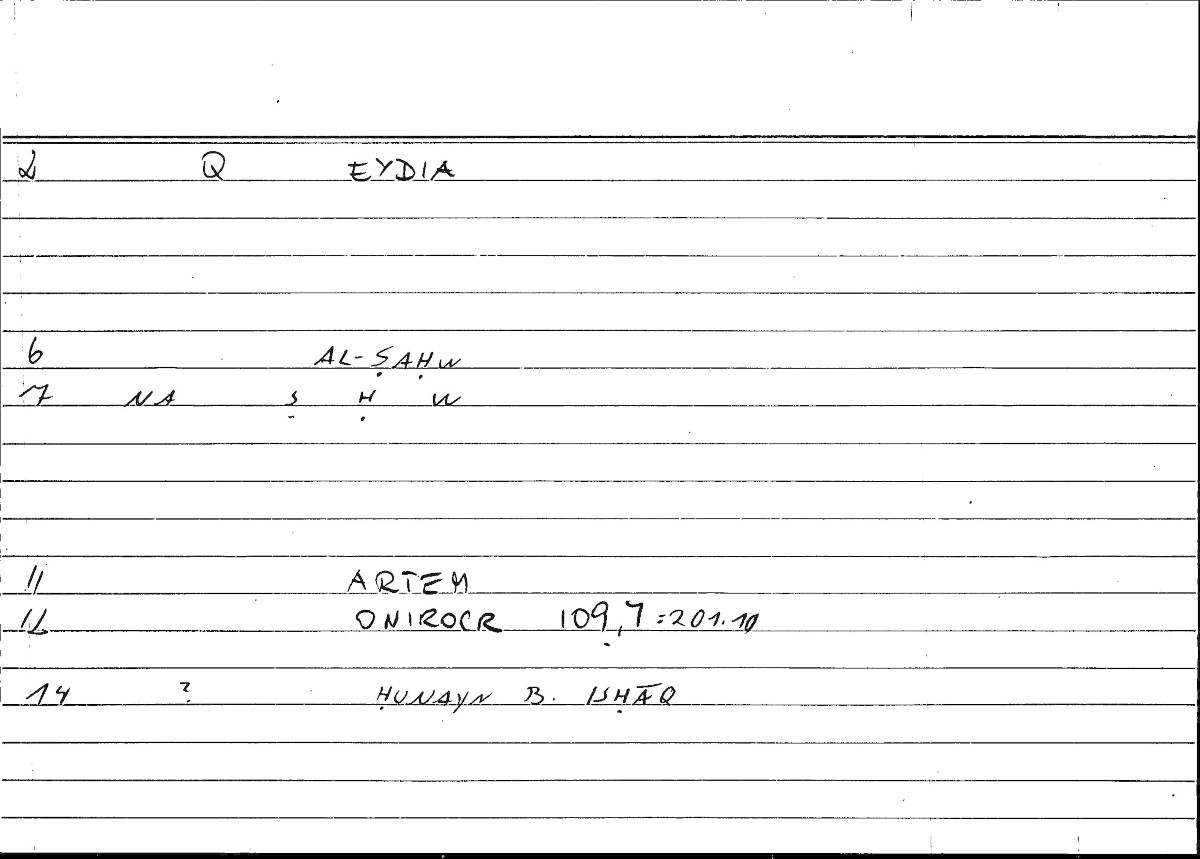 2 Q EYDIA
6 AL-ṢAḤW
7 NA Ṣ Ḥ W
11 ARTEM
12 ONIROCR 109,7=201.10
14 ? ḤUNAYN B. ISḤĀQ